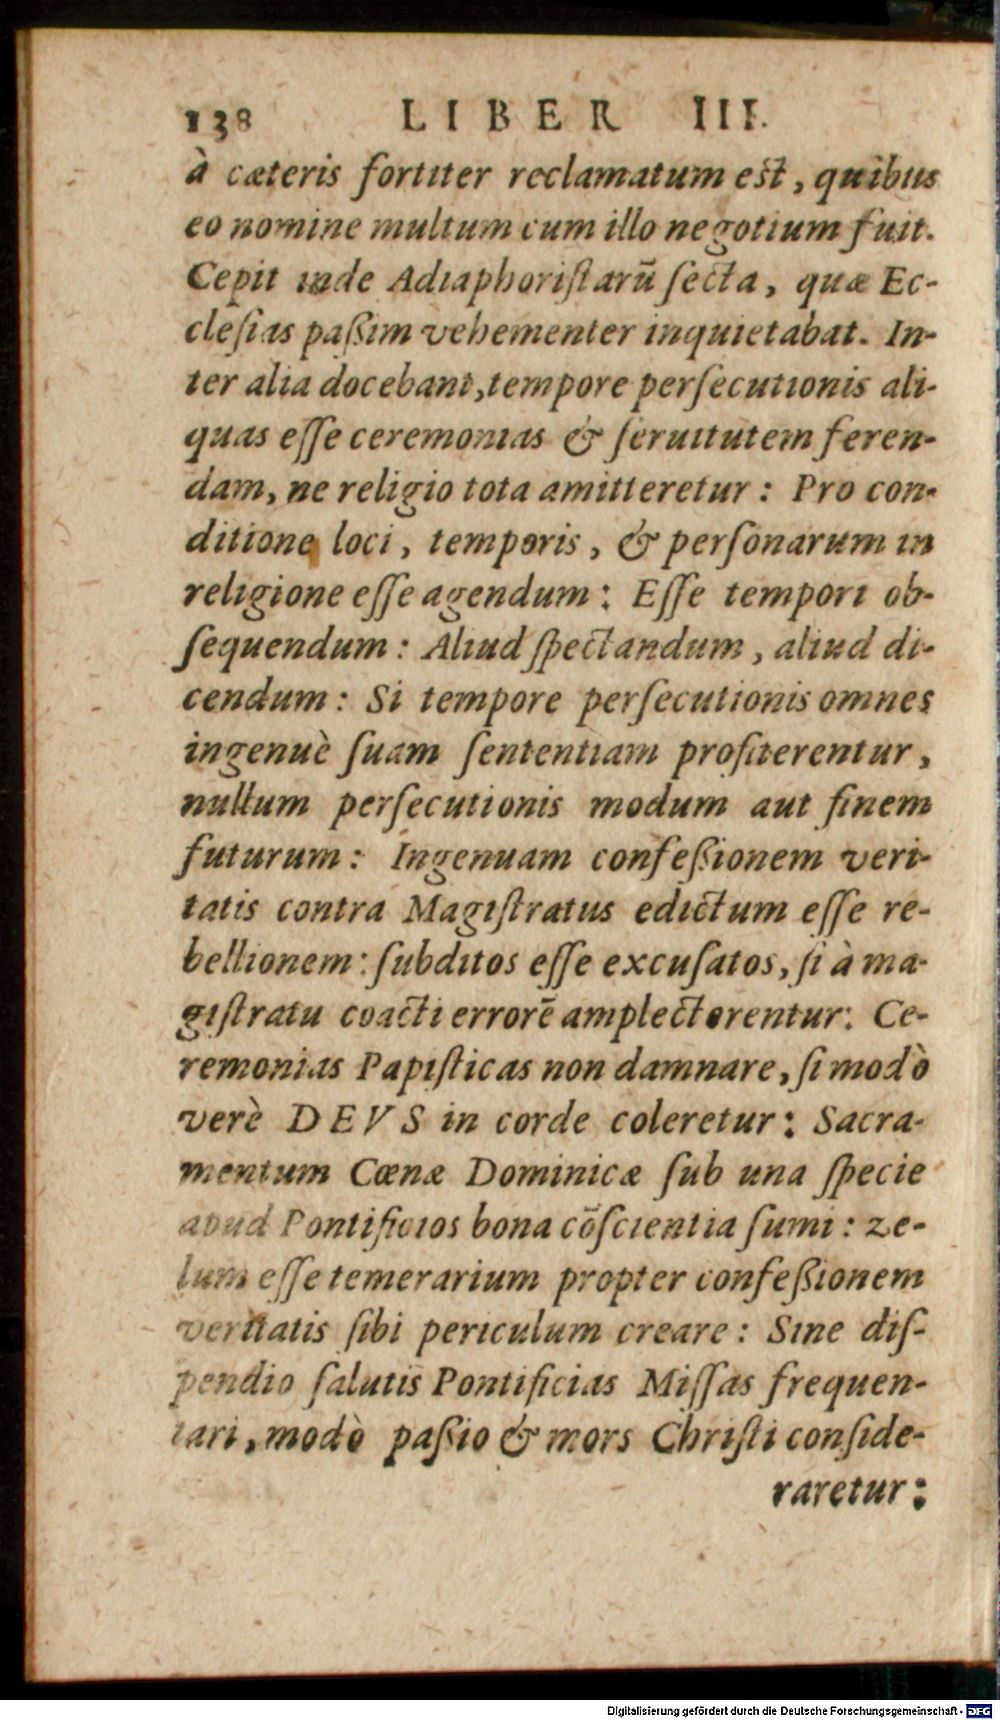 138 LIBER III.
à cæteris fortiter reclamatum est, quibus
eo nomine multum cum illo negotium fuit.
Cepit inde Adiaphoriſtarũ ſecta, quæ Ec-
cleſias paßim vehementer inquietabat. In-
ter alia docebant, tempore perſecutionis ali-
quas eſſe ceremonias & ſeruitutem feren-
dam, ne religio tota amitteretur: Pro con-
ditione loci, temporis, & perſonarum in
religione eſſe agendum: Eſſe tempori ob-
ſequendum: Aliud ſpectandum, aliud di-
cendum: Si tempore perſecutionis omnes
ingenuè ſuam ſententiam profiterentur,
nullum perſecutionis modum aut finem
futurum: Ingenuam confeßionem veri-
tatis contra Magiſtratus edictum eſſe re-
bellionem: ſubditos eſſe excuſatos, ſi à ma-
giſtratu coacti errorẽ amplecterentur: Ce-
remonias Papiſticas non damnare, ſi modò
verè DEVS in corde coleretur: Sacra-
mentum Cœnæ Dominicæ ſub una ſpecie
apud Pontificios bona cõſcientia ſumi: ze-
lum eſſe temerarium propter confeßionem
veritatis ſibi periculum creare: Sine diſ-
pendio ſalutis Pontificias Miſſas frequen-
tari, modò paßio & mors Chriſti conſide-
raretur:
Digitalisierung gefördert durch die Deutsche Forschungsgemeinschaft - DFG